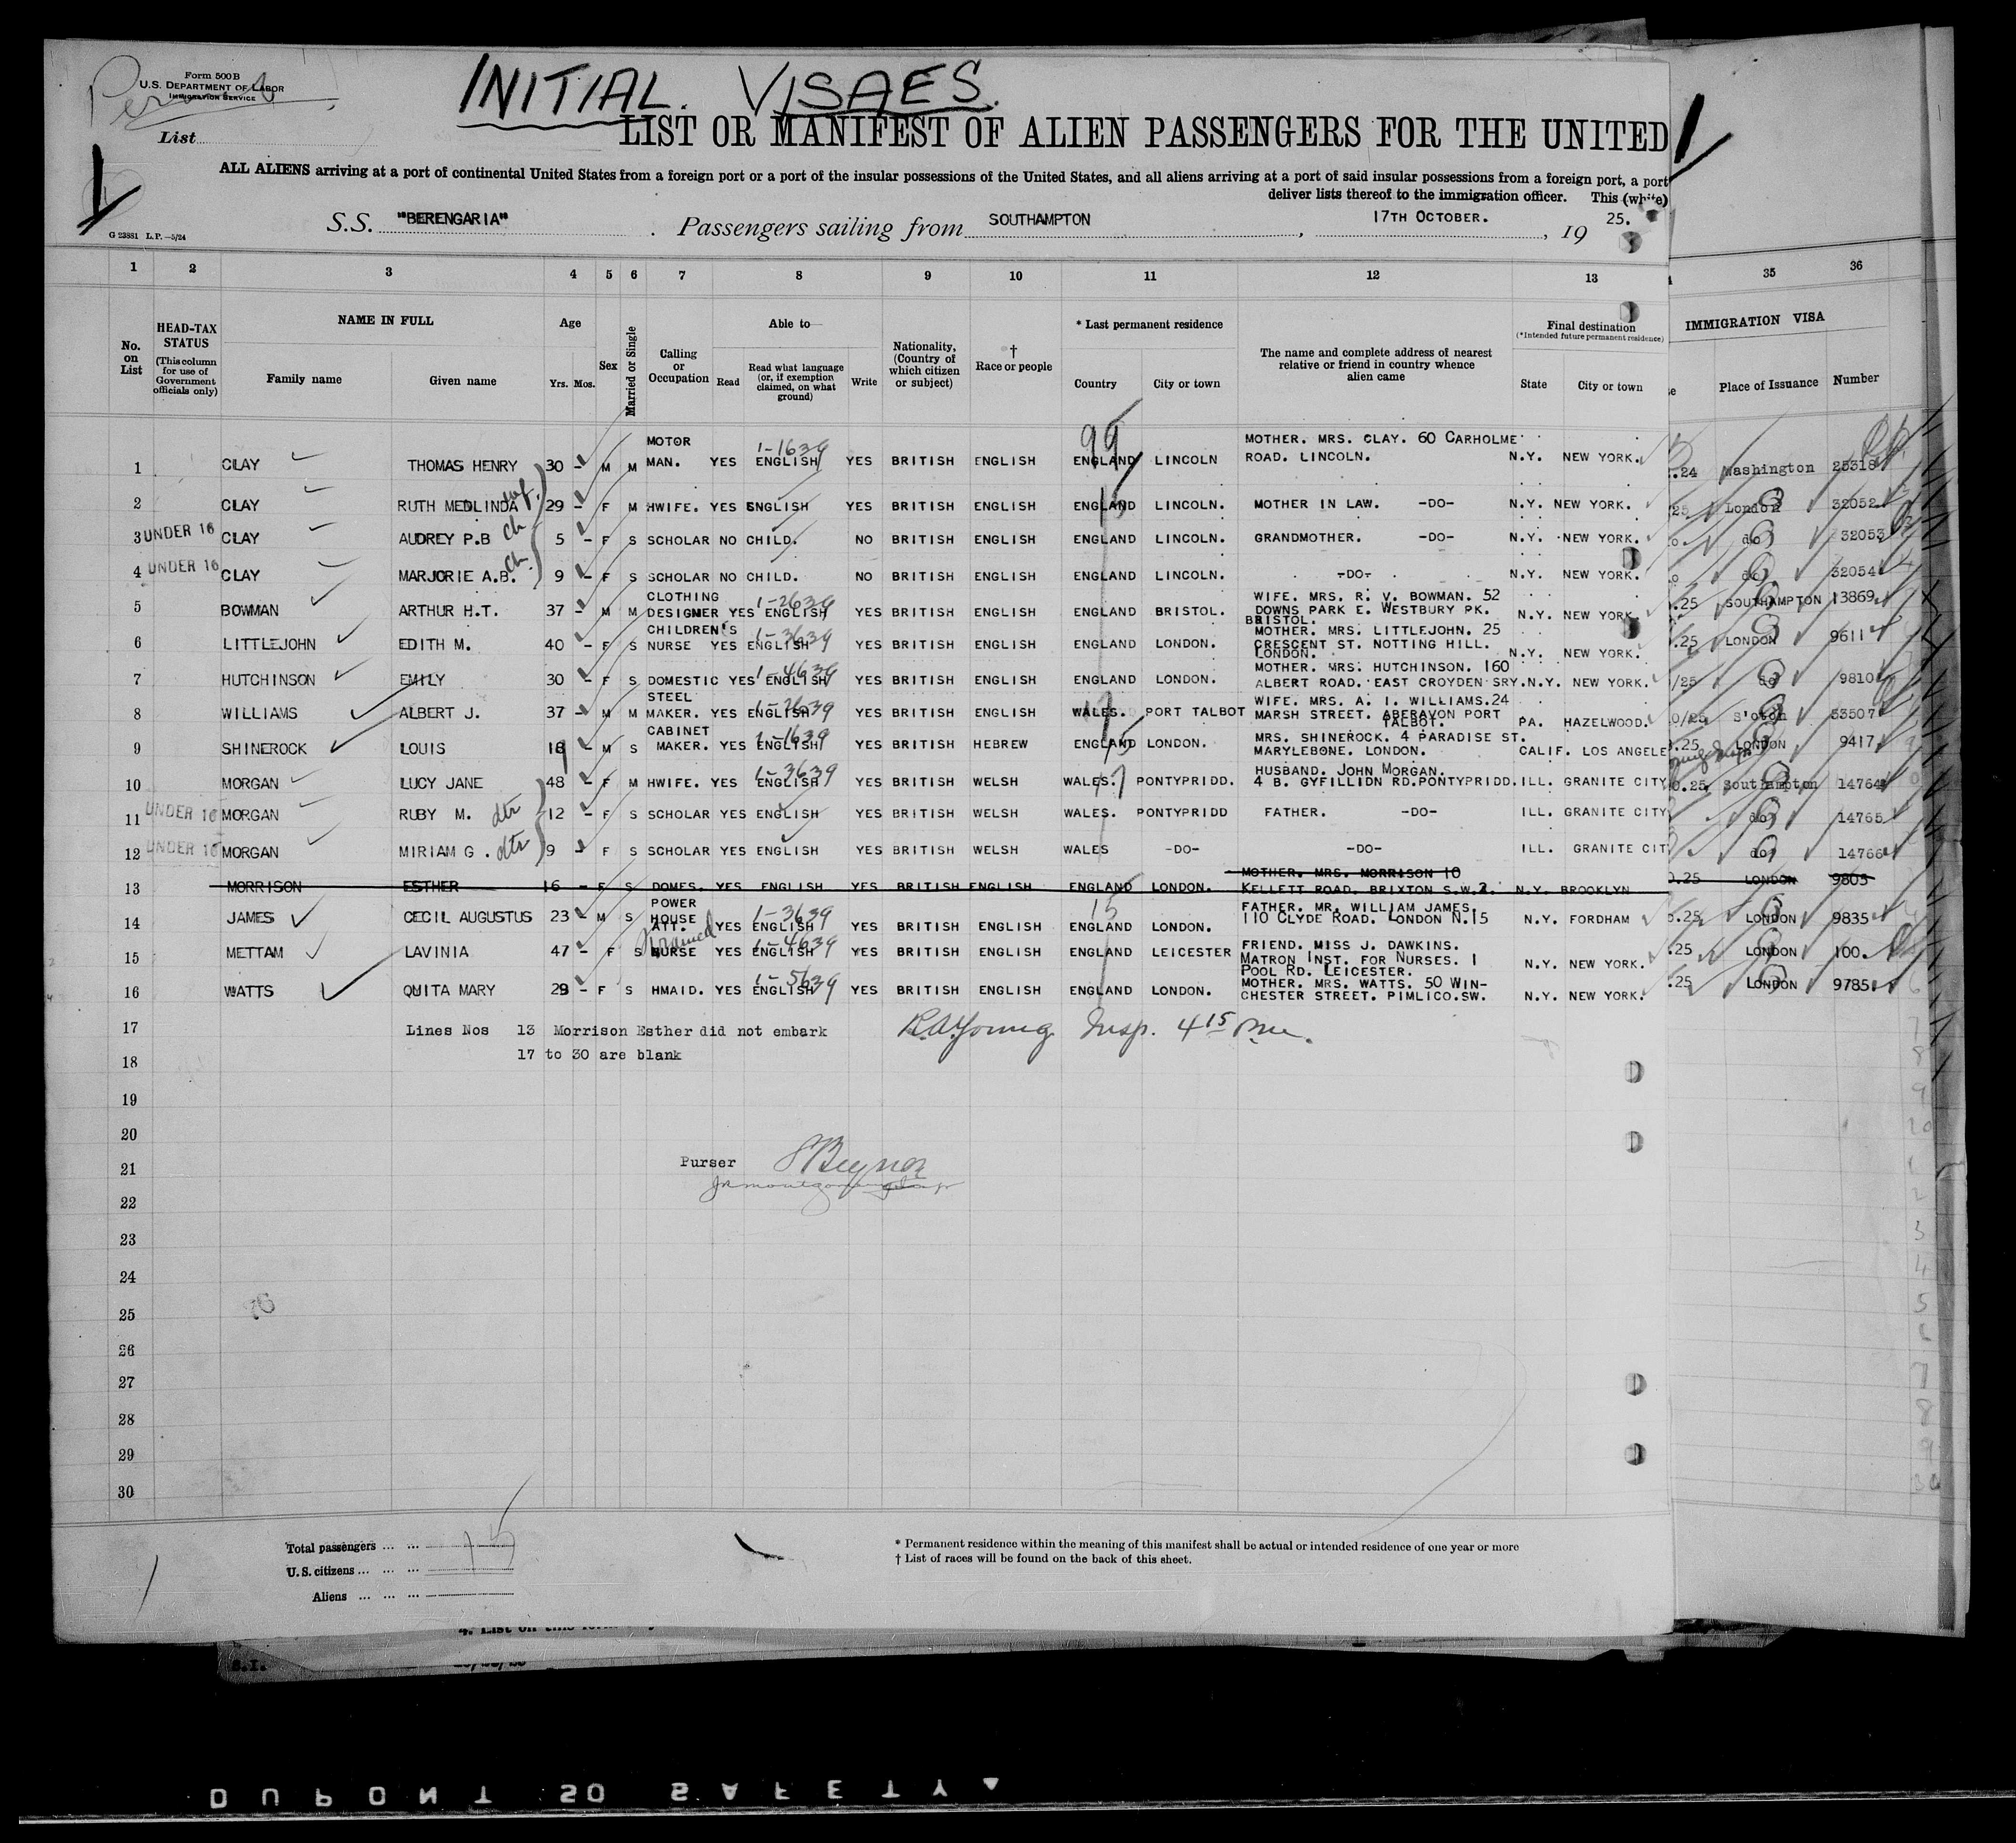 INITIAL. VISAES.
Form 500B
U.S. DEPARTMENT OF LABOR
IMMIGRATION SERVICE
List
LIST OR MANIFEST OF ALIEN PASSENGERS FOR THE UNITED
ALL ALIENS arriving at a port of continental United States from a foreign port or a port of the insular possessions of the United States, and all aliens arriving at a port of said insular possessions from a foreign port, a port
deliver lists thereof to the immigration officer. This (white)
S.S. "BERENGARIA" . Passengers sailing from SOUTHAMPTON , 17TH OCTOBER. , 19 25.
G 23881 L.P.—5/24
1 2 3 4 5 6 7 8 9 10 11 12 13 35 36
No. on List
HEAD-TAX STATUS (This column for use of Government officials only)
NAME IN FULL
Family name Given name
Age
Yrs. Mos.
Sex
Married or Single
Calling or Occupation
Able to
Read Read what language (or, if exemption claimed, on what ground) Write
Nationality, (Country of which citizen or subject)
† Race or people
* Last permanent residence
Country City or town
The name and complete address of nearest relative or friend in country whence alien came
Final destination
(*Intended future permanent residence)
State City or town
IMMIGRATION VISA
Place of Issuance Number
1 CLAY THOMAS HENRY 30 - M M MOTOR MAN. YES 1-1639 ENGLISH YES BRITISH ENGLISH 99 ENGLAND LINCOLN MOTHER. MRS. CLAY. 60 CARHOLME ROAD. LINCOLN. N.Y. NEW YORK. .24 Washington 25318
2 CLAY RUTH MEDLINDA wf. 29 - F M HWIFE. YES ENGLISH YES BRITISH ENGLISH ENGLAND LINCOLN. MOTHER IN LAW. -DO- N.Y. NEW YORK. 25 London 32052
3 UNDER 16 CLAY AUDREY P.B ch 5 - F S SCHOLAR NO CHILD. NO BRITISH ENGLISH ENGLAND LINCOLN. GRANDMOTHER. -DO- N.Y. NEW YORK. do 32053
4 UNDER 16 CLAY MARJORIE A.B. ch. 9 - F S SCHOLAR NO CHILD. NO BRITISH ENGLISH ENGLAND LINCOLN. -DO- N.Y. NEW YORK. do 32054
5 BOWMAN ARTHUR H.T. 37 - M M CLOTHING DESIGNER YES 1-2639 ENGLISH YES BRITISH ENGLISH ENGLAND BRISTOL. WIFE. MRS. R. V. BOWMAN. 52 DOWNS PARK E. WESTBURY PK. BRISTOL. N.Y. NEW YORK. .25 SOUTHAMPTON 13869
6 LITTLEJOHN EDITH M. 40 - F S CHILDREN'S NURSE YES 1-3639 ENGLISH YES BRITISH ENGLISH ENGLAND LONDON. MOTHER. MRS. LITTLEJOHN. 25 CRESCENT ST. NOTTING HILL. LONDON. N.Y. NEW YORK. .25 LONDON 9611
7 HUTCHINSON EMILY 30 - F S DOMESTIC YES 1-4639 ENGLISH YES BRITISH ENGLISH ENGLAND LONDON. MOTHER. MRS. HUTCHINSON. 160 ALBERT ROAD. EAST CROYDEN SRY. N.Y. NEW YORK. /25 do 9810
8 WILLIAMS ALBERT J. 37 - M M STEEL MAKER. YES 1-2639 ENGLISH YES BRITISH ENGLISH WALES. PORT TALBOT WIFE. MRS. A. I. WILLIAMS.24 MARSH STREET. ABERAVON PORT TALBOT. PA. HAZELWOOD. 0/25 S'oton 53507
9 SHINEROCK LOUIS 18 - M S CABINET MAKER. YES 1-1639 ENGLISH YES BRITISH HEBREW ENGLAND LONDON. MRS. SHINEROCK. 4 PARADISE ST. MARYLEBONE. LONDON. CALIF. LOS ANGELE .25 LONDON 9417
10 MORGAN LUCY JANE 48 - F M HWIFE. YES 1-3639 ENGLISH YES BRITISH WELSH WALES. PONTYPRIDD. HUSBAND. JOHN MORGAN. 4 B. GYFILLIDN RD.PONTYPRIDD. ILL. GRANITE CITY 0.25 Southampton 14764
11 UNDER 16 MORGAN RUBY M. dtr 12 - F S SCHOLAR YES ENGLISH YES BRITISH WELSH WALES. PONTYPRIDD FATHER. -DO- ILL. GRANITE CITY do 14765
12 UNDER 16 MORGAN MIRIAM G . dtr 9 - F S SCHOLAR YES ENGLISH YES BRITISH WELSH WALES -DO- -DO- ILL. GRANITE CIT do 14766
13 MORRISON ESTHER 16 - F S DOMES. YES ENGLISH YES BRITISH ENGLISH ENGLAND LONDON. MOTHER. MRS. MORRISON 10 KELLETT ROAD. BRIXTON S.W.2. N.Y. BROOKLYN 0.25 LONDON 9803
14 JAMES CECIL AUGUSTUS 23 - M S POWER HOUSE ATT. YES 1-3639 ENGLISH YES BRITISH ENGLISH 15 ENGLAND LONDON. FATHER. MR. WILLIAM JAMES. 110 CLYDE ROAD. LONDON N.15 N.Y. FORDHAM .25 LONDON 9835
15 METTAM LAVINIA 47 - F S trained NURSE YES 1-4639 ENGLISH YES BRITISH ENGLISH ENGLAND LEICESTER FRIEND. MISS J. DAWKINS. MATRON INST. FOR NURSES. 1 POOL RD. LEICESTER. N.Y. NEW YORK. .25 LONDON 100.
16 WATTS QUITA MARY 29 - F S HMAID. YES 1-5639 ENGLISH YES BRITISH ENGLISH ENGLAND LONDON. MOTHER. MRS. WATTS. 50 WIN-CHESTER STREET. PIMLICO.SW. N.Y. NEW YORK. .25 LONDON 9785.
17 Lines Nos 13 Morrison Esther did not embark R.A.Young Insp. 4 15 p.m.
17 to 30 are blank
18
19
20
21 Purser
22
23
24
25
26
27
28
29
30
Total passengers ... ... 15
U.S. citizens ... ... ...
Aliens ... ... ...
* Permanent residence within the meaning of this manifest shall be actual or intended residence of one year or more
† List of races will be found on the back of this sheet.
S.I.
DUPONT 50 SAFETY